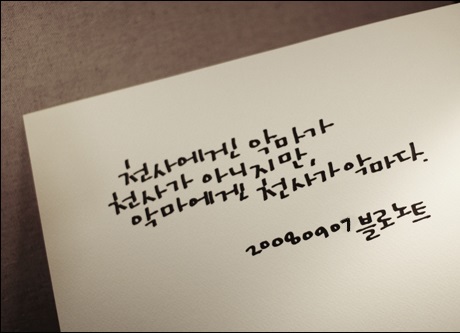 천사에게는 악마가
천사가 아니지만,
악마에겐 천사가 악마다.
20080907 블로노트